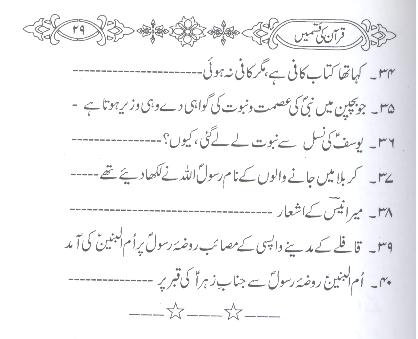 قرآن کی قسمیں
۲۹
۳۴۔ کہا تھا کتاب کافی ہے، مگر کافی نہ ہوئی ---------------
۳۵۔ جو بچپن میں نبیؐ کی عصمت و نبوت کی گواہی دے وہی وزیر ہوتا ہے -
۳۶۔ یوسفؑ کی نسل سے نبوت لے لے گئی، کیوں؟ ---------------
۳۷۔ کربلا میں جانے والوں کے نام رسولؐ اللہ نے لکھا دیئے تھے -----
۳۸۔ میر انیسؔ کے اشعار ---------------------------
۳۹۔ قافلے کے مدینے واپسی کے مصائب روضۂ رسولؐ پر اُم البنینؑ کی آمد
۴۰۔ اُم البنینؑ روضۂ رسولؐ سے جناب زہراؑ کی قبر پر ------------
---☆---☆---